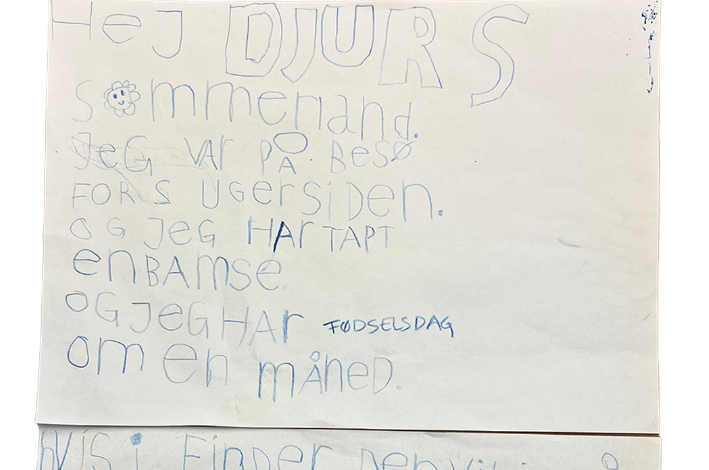 Hej DJURS
Sommerland.
Jeg var på besø
FOR 5 UGER SIDEN.
OG JeG HAr TAPT
en BAMSE.
OG JeG HAr FØDSELSDAG
om en måneD.
hvis i Finder Den